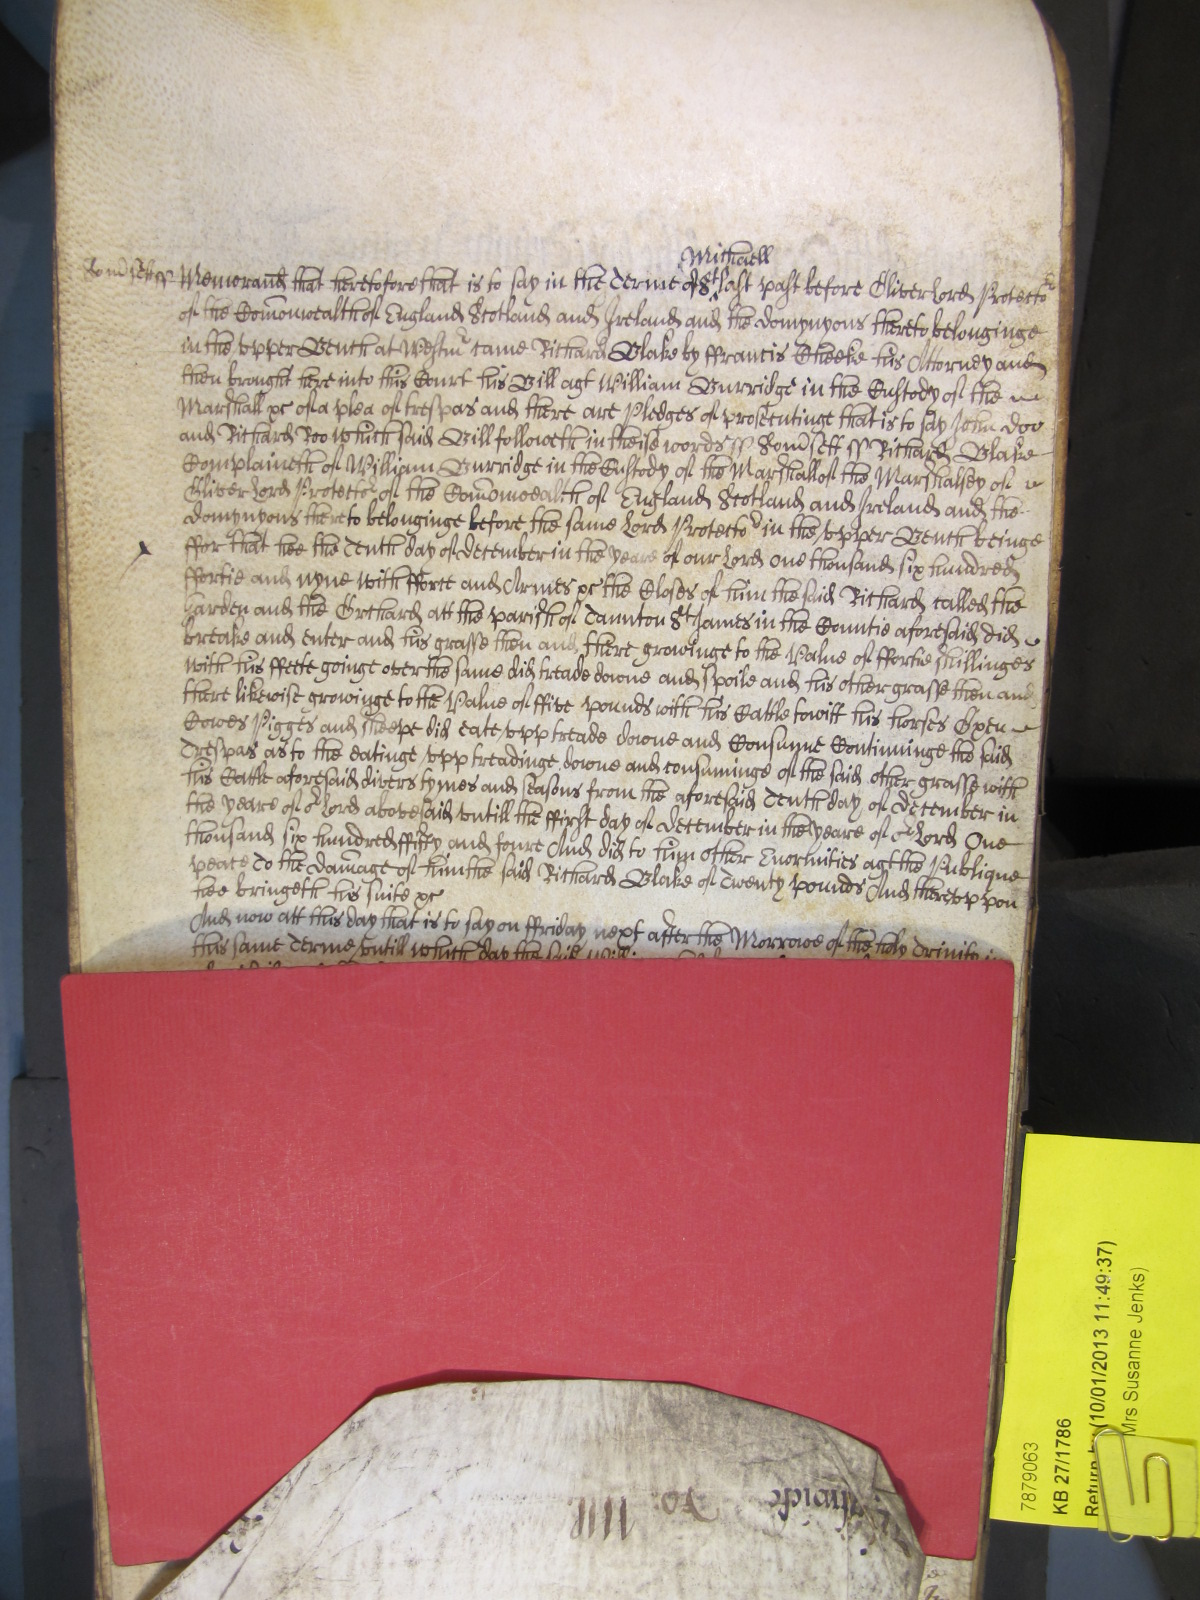 Michaell
Somsett ss Memorand that heretofore that is to say in the Terme of St last past before Oliver Lord Protector
of the Comonwealth of England Scotland and Ireland and the domynyons thereto belonginge
in the upper Bench at Westmr came Richard Blake by ffrancis Cheeke his Attorney and
then brought here into this Court his Bill agt William Burridge in the Custody of the
Marshall &c of a plea of trespas and there are Pledges of prosecutinge that is to say John Doo
and Richard Roo Which said Bill followeth in theise words ss Somsett ss Richard Blake
Complaineth of William Burridge in the Custody of the Marshall of the Marshalsey of
Oliver Lord Protector of the Comonwealth of England Scotland and Ireland and the
domynyons thereto belonginge before the same Lord Protector in the upper Bench beinge
ffor that hee the Tenth day of december in the yeare of our Lord One thousand six hundred
ffortie and nyne with fforce and Armes &c the Closes of him the said Richard called the
Garden and the Orchard att the parish of Taunton St James in the Countie aforesaid did
breake and enter and his grasse then and there growinge to the Value of ffortie shillinges
with his ffeete goinge over the same did treade downe and spoile and his other grasse then and
there likewise growinge to the Value of ffive pounds with his Cattle towitt his horses Oxen
Cowes Pigges and sheepe did eate upp treade downe and Consume Continuinge the said
Trespas as to the eatinge upp treadinge downe and consuminge of the said other grasse with
his Cattle aforesaid divers tymes and seasons from the aforesaid Tenth day of December in
the yeare of or Lord abovesaid untill the ffirst day of December in the yeare of or Lord One
thousand six hundred ffifty and foure And did to him other Enormities agt the Publique
peace To the damage of him the said Richard Blake of Twenty pounds And thereuppon
hee bringeth his suite &c
And now att this day that is to say on ffriday next after the Morrowe of the holy Trinity in
this same Terme untill which day the said
7879063
KB 27/1786
Return (10/01/2013 11:49:37)
Mrs Susanne Jenks)